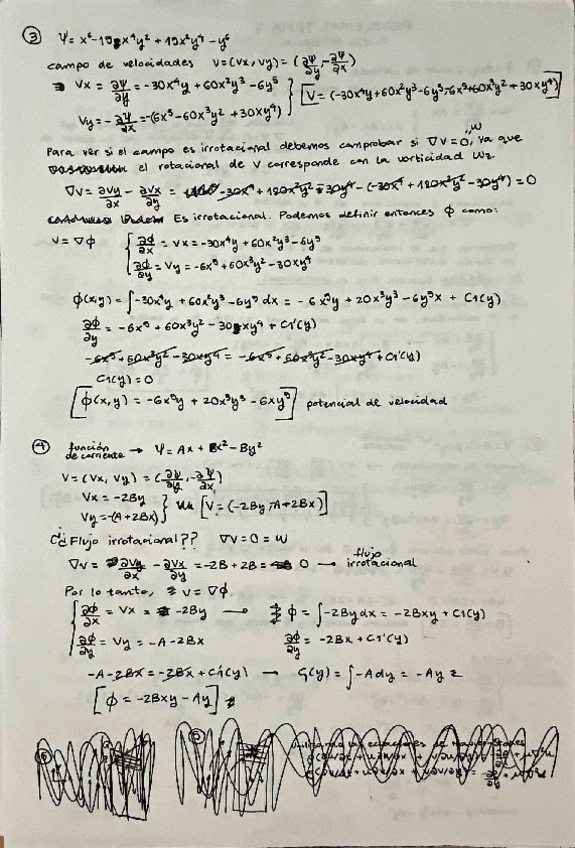 ③ Ψ = x⁶ - 15x⁴y² + 15x²y⁴ - y⁶
campo de velocidades V = (Vx, Vy) = (∂Ψ/∂y, -∂Ψ/∂x)
Vx = ∂Ψ/∂y = -30x⁴y + 60x²y³ - 6y⁵
Vy = -∂Ψ/∂x = -(6x⁵ - 60x³y² + 30xy⁴)
[V = (-30x⁴y + 60x²y³ - 6y⁵, -6x⁵ + 60x³y² + 30xy⁴)]
Para ver si el campo es irrotacional debemos comprobar si ∇V = 0, ya que
el rotacional de V corresponde con la vorticidad Wz.
∇V = ∂Vy/∂x - ∂Vx/∂y = -30x⁴ + 180x²y² - 30y⁴ - (-30x⁴ + 180x²y² - 30y⁴) = 0
Es irrotacional. Podemos definir entonces ϕ como:
V = ∇ϕ { ∂ϕ/∂x = Vx = -30x⁴y + 60x²y³ - 6y⁵
∂ϕ/∂y = Vy = -6x⁵ + 60x³y² - 30xy⁴
ϕ(x,y) = ∫-30x⁴y + 60x²y³ - 6y⁵ dx = -6x⁵y + 20x³y³ - 6y⁵x + C1(y)
∂ϕ/∂y = -6x⁵ + 60x³y² - 30xy⁴ + C1'(y)
-6x⁵ + 60x³y² - 30xy⁴ = -6x⁵ + 60x³y² - 30xy⁴ + C1'(y)
C1(y) = 0
[ϕ(x,y) = -6x⁵y + 20x³y³ - 6xy⁵] potencial de velocidad
④ función de corriente → Ψ = Ax + Bx² - By²
V = (Vx, Vy) = (∂Ψ/∂y, -∂Ψ/∂x)
Vx = -2By
Vy = -(A + 2Bx)
[V = (-2By, -A + 2Bx)]
¿¿Flujo irrotacional?? ∇V = 0 = W
∇V = ∂Vy/∂x - ∂Vx/∂y = -2B + 2B = 0 → flujo irrotacional
Por lo tanto, V = ∇ϕ
∂ϕ/∂x = Vx = -2By → ϕ = ∫-2By dx = -2Bxy + C1(y)
∂ϕ/∂y = Vy = -A - 2Bx ∂ϕ/∂y = -2Bx + C1'(y)
-A - 2Bx = -2Bx + C1'(y) → C1(y) = ∫-A dy = -Ay
[ϕ = -2Bxy - Ay]